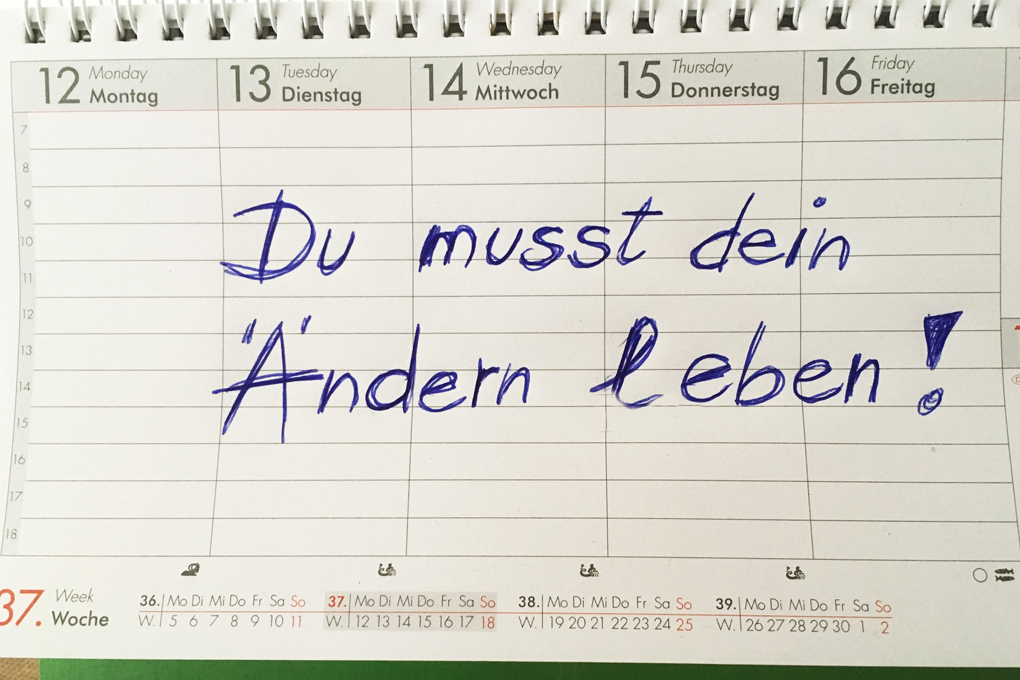 12 Monday Montag 13 Tuesday Dienstag 14 Wednesday Mittwoch 15 Thursday Donnerstag 16 Friday Freitag
7
8
9
10
11
12
13
14
15
16
17
18
Du musst dein
Ändern leben!
37. Week Woche
36. Mo Di Mi Do Fr Sa So 37. Mo Di Mi Do Fr Sa So 38. Mo Di Mi Do Fr Sa So 39. Mo Di Mi Do Fr Sa So
W. 5 6 7 8 9 10 11 W. 12 13 14 15 16 17 18 W. 19 20 21 22 23 24 25 W. 26 27 28 29 30 1 2